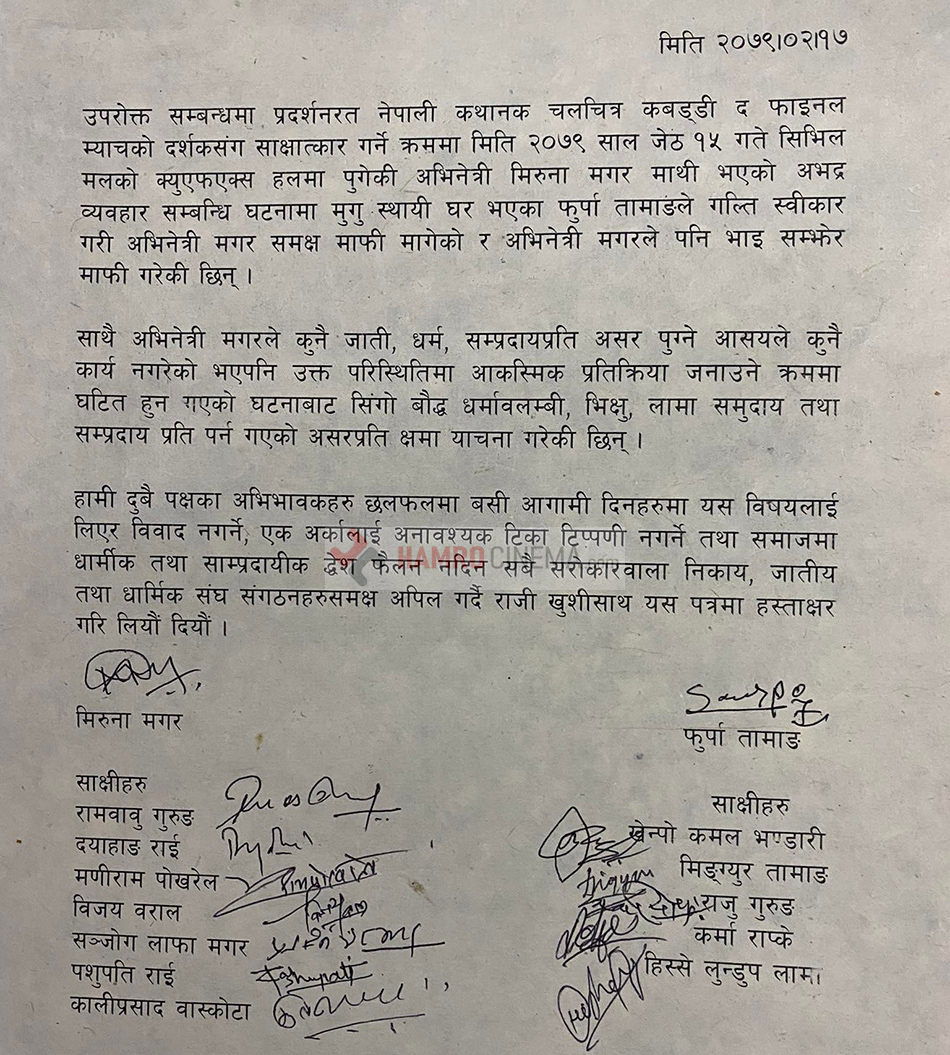 मिति २०७९।०२।१७
उपरोक्त सम्बन्धमा प्रदर्शनरत नेपाली कथानक चलचित्र कबड्डी द फाइनल
म्याचको दर्शकसंग साक्षात्कार गर्ने क्रममा मिति २०७९ साल जेठ १५ गते सिभिल
मलको क्युएफएक्स हलमा पुगेकी अभिनेत्री मिरुना मगर माथी भएको अभद्र
व्यवहार सम्बन्धि घटनामा मुगु स्थायी घर भएका फुर्पा तामाङले गल्ति स्वीकार
गरी अभिनेत्री मगर समक्ष माफी मागेको र अभिनेत्री मगरले पनि भाइ सम्झेर
माफी गरेकी छिन् ।
साथै अभिनेत्री मगरले कुनै जाती, धर्म, सम्प्रदायप्रति असर पुग्ने आसयले कुनै
कार्य नगरेको भएपनि उक्त परिस्थितिमा आकस्मिक प्रतिक्रिया जनाउने क्रममा
घटित हुन गएको घटनाबाट सिंगो बौद्ध धर्मावलम्बी, भिक्षु, लामा समुदाय तथा
सम्प्रदाय प्रति पर्न गएको असरप्रति क्षमा याचना गरेकी छिन् ।
हामी दुबै पक्षका अभिभावकहरु छलफलमा बसी आगामी दिनहरुमा यस विषयलाई
लिएर विवाद नगर्ने, एक अर्कालाई अनावश्यक टिका टिप्पणी नगर्ने तथा समाजमा
HAMROCINEMA.com
धार्मीक तथा साम्प्रदायीक द्धेश फैलन नदिन सबै सरोकारवाला निकाय, जातीय
तथा धार्मिक संघ संगठनहरुसमक्ष अपिल गर्दै राजी खुशीसाथ यस पत्रमा हस्ताक्षर
गरि लियौं दियौं ।
मिरुना मगर
फुर्पा तामाङ
साक्षीहरु
रामवावु गुरुङ
दयाहाङ राई
मणीराम पोखरेल
विजय वराल
सञ्जोग लाफा मगर
पशुपति राई
कालीप्रसाद वास्कोटा
साक्षीहरु
खेन्पो कमल भण्डारी
मिङ्ग्युर तामाङ
राजु गुरुङ
कर्मा राप्के
हिस्से लुन्डुप लामा